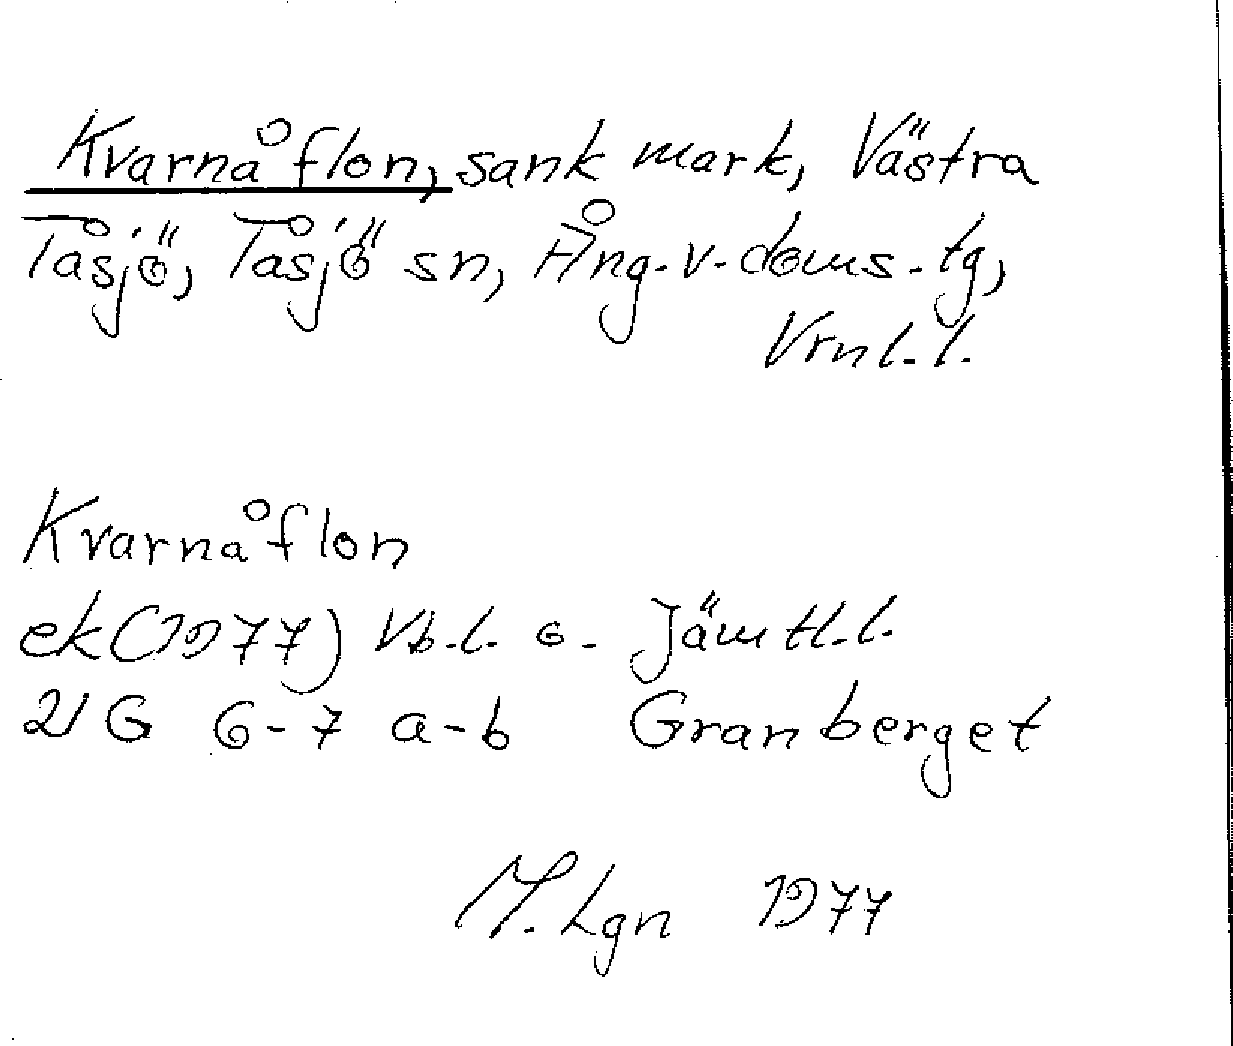 Kvarnåflon, sank mark, Västra
Tåsjö, Tåsjö sn, Ång.v.doms.tg,
Vrnl.l.
Kvarnåflon
ek (1977) Vb.l. o. Jämtl.l.
21 G 6-7 a-b Granberget
M. Lgn 1977